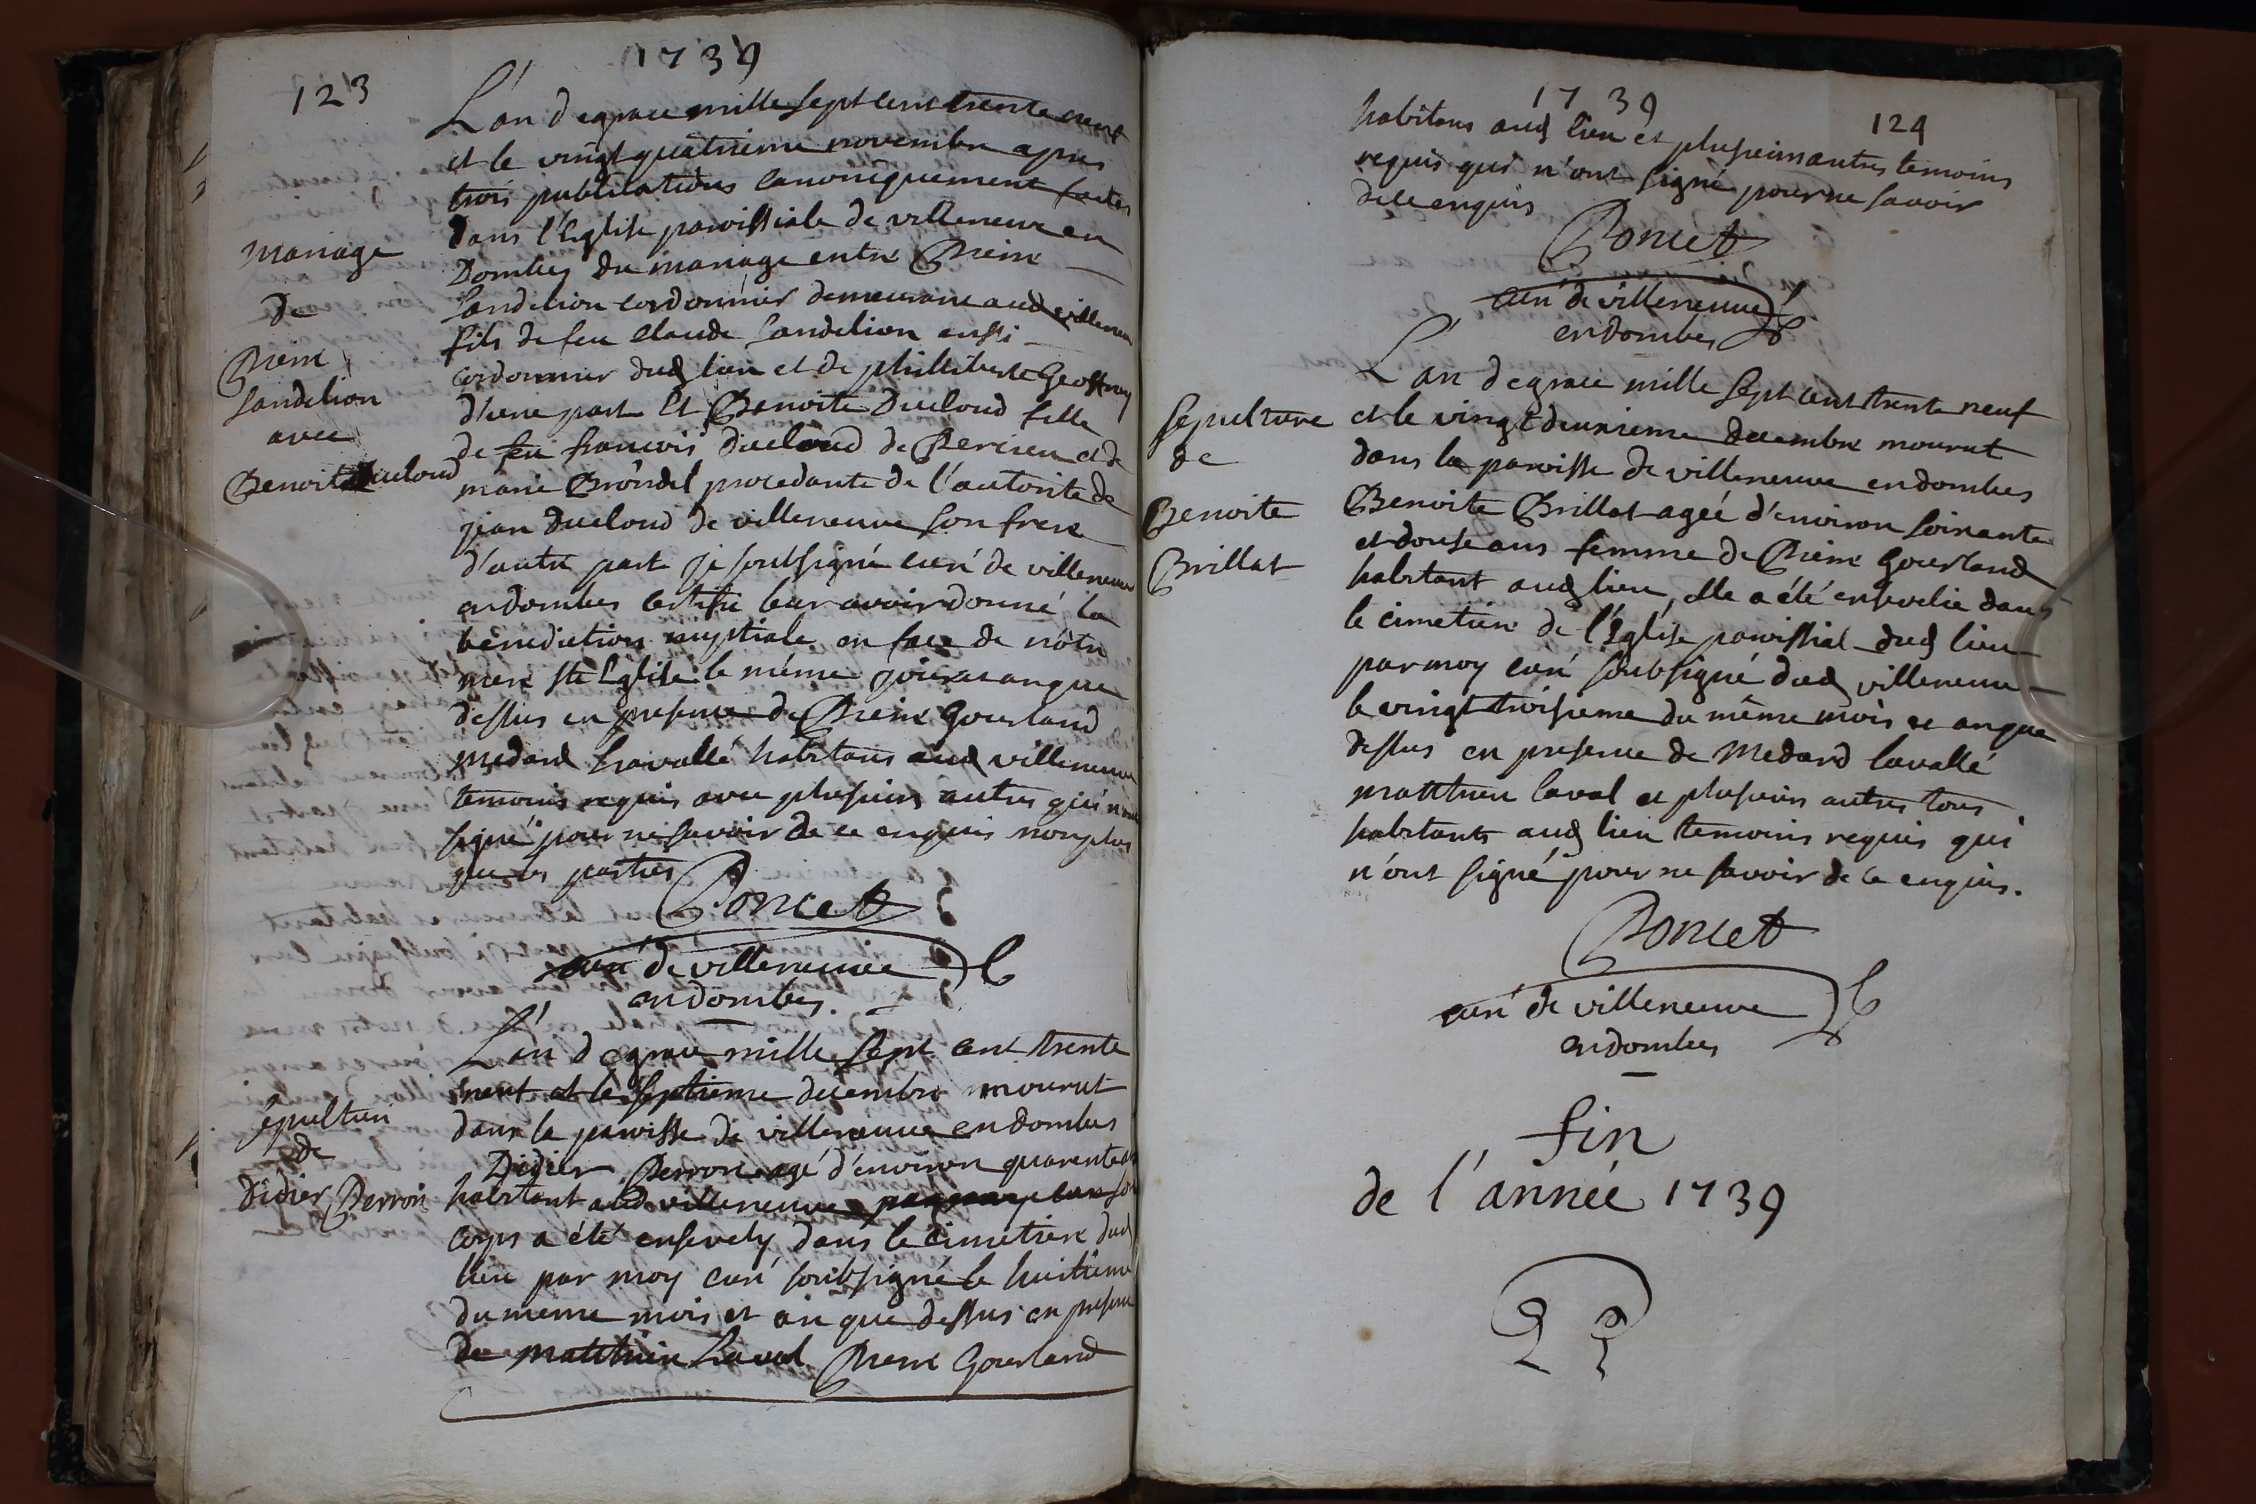 1739
123
L'an de grace mille sept cent trente neuf
et le vingt quatrieme novembre apres
trois publications canoniquement faites
dans l'Eglise paroissiale de villeneuve en
Dombes du mariage entre Pierre
Sandelion cordonnier demeurant aud villeneuve
fils de feu Claude Sandelion aussi
cordonnier dud lieu et de philliberte Geoffray
d'une part Et Benoite Ducloud fille
de feu francois ducloud de Percieu et de
marie Brondel procedante de l'autorité de
jean ducloud de villeneuve son frere
d'autre part je soubsigné curé de villeneuve
en dombes certifie leur avoir donné la
bénédiction nuptiale en face de nôtre
mere Ste Eglise le même jour et an que
dessus en presence de Pierre Gourland
medard Lavallé habitans aud villeneuve
temoins requis avec plusieurs autres qui n'ont
signé pour ne savoir de ce enquis non plus
que les parties
Poncet
curé de villeneuve
en dombes
mariage
de
Pierre
Sandelion
avec
Benoite Ducloud
L'an de grace mille sept cent trente
neuf et le septieme décembre mourut
dans la paroisse de villeneuve en dombes
Didier Perron agé d'environ quarente ans
habitant aud villeneuve son
corps a été ensevely dans le cimetiere dud
lieu par moy curé soubsigné le huitieme
du meme mois et an que dessus en presence
de Matthieu Laval Pierre Gourland
épulture
de
Didier Perron
1739
124
habitans aud lieu et plusieurs autres temoins
requis qui n'ont signé pour ne savoir
de ce enquis
Poncet
curé de villeneuve
en dombes
L'an de grace mille sept cent trente neuf
et le vingt deuxieme decembre mourut
dans la paroisse de villeneuve en dombes
Benoite Brillat agée d'environ soixante
et douse ans femme de Pierre Gourland
habitant aud lieu, elle a été ensevelie dans
le cimetiere de l'Eglise paroissial dud lieu
par moy curé soubsigné dud villeneuve
le vingt troisieme du même mois et an que
dessus en presence de Medard lavallé
matthieu laval et plusieurs autres tous
habitants aud lieu temoins requis qui
n'ont signé pour ne savoir de ce enquis.
Poncet
curé de villeneuve
en dombes
sepulture
de
Benoite
Brillat
fin
de l'année 1739